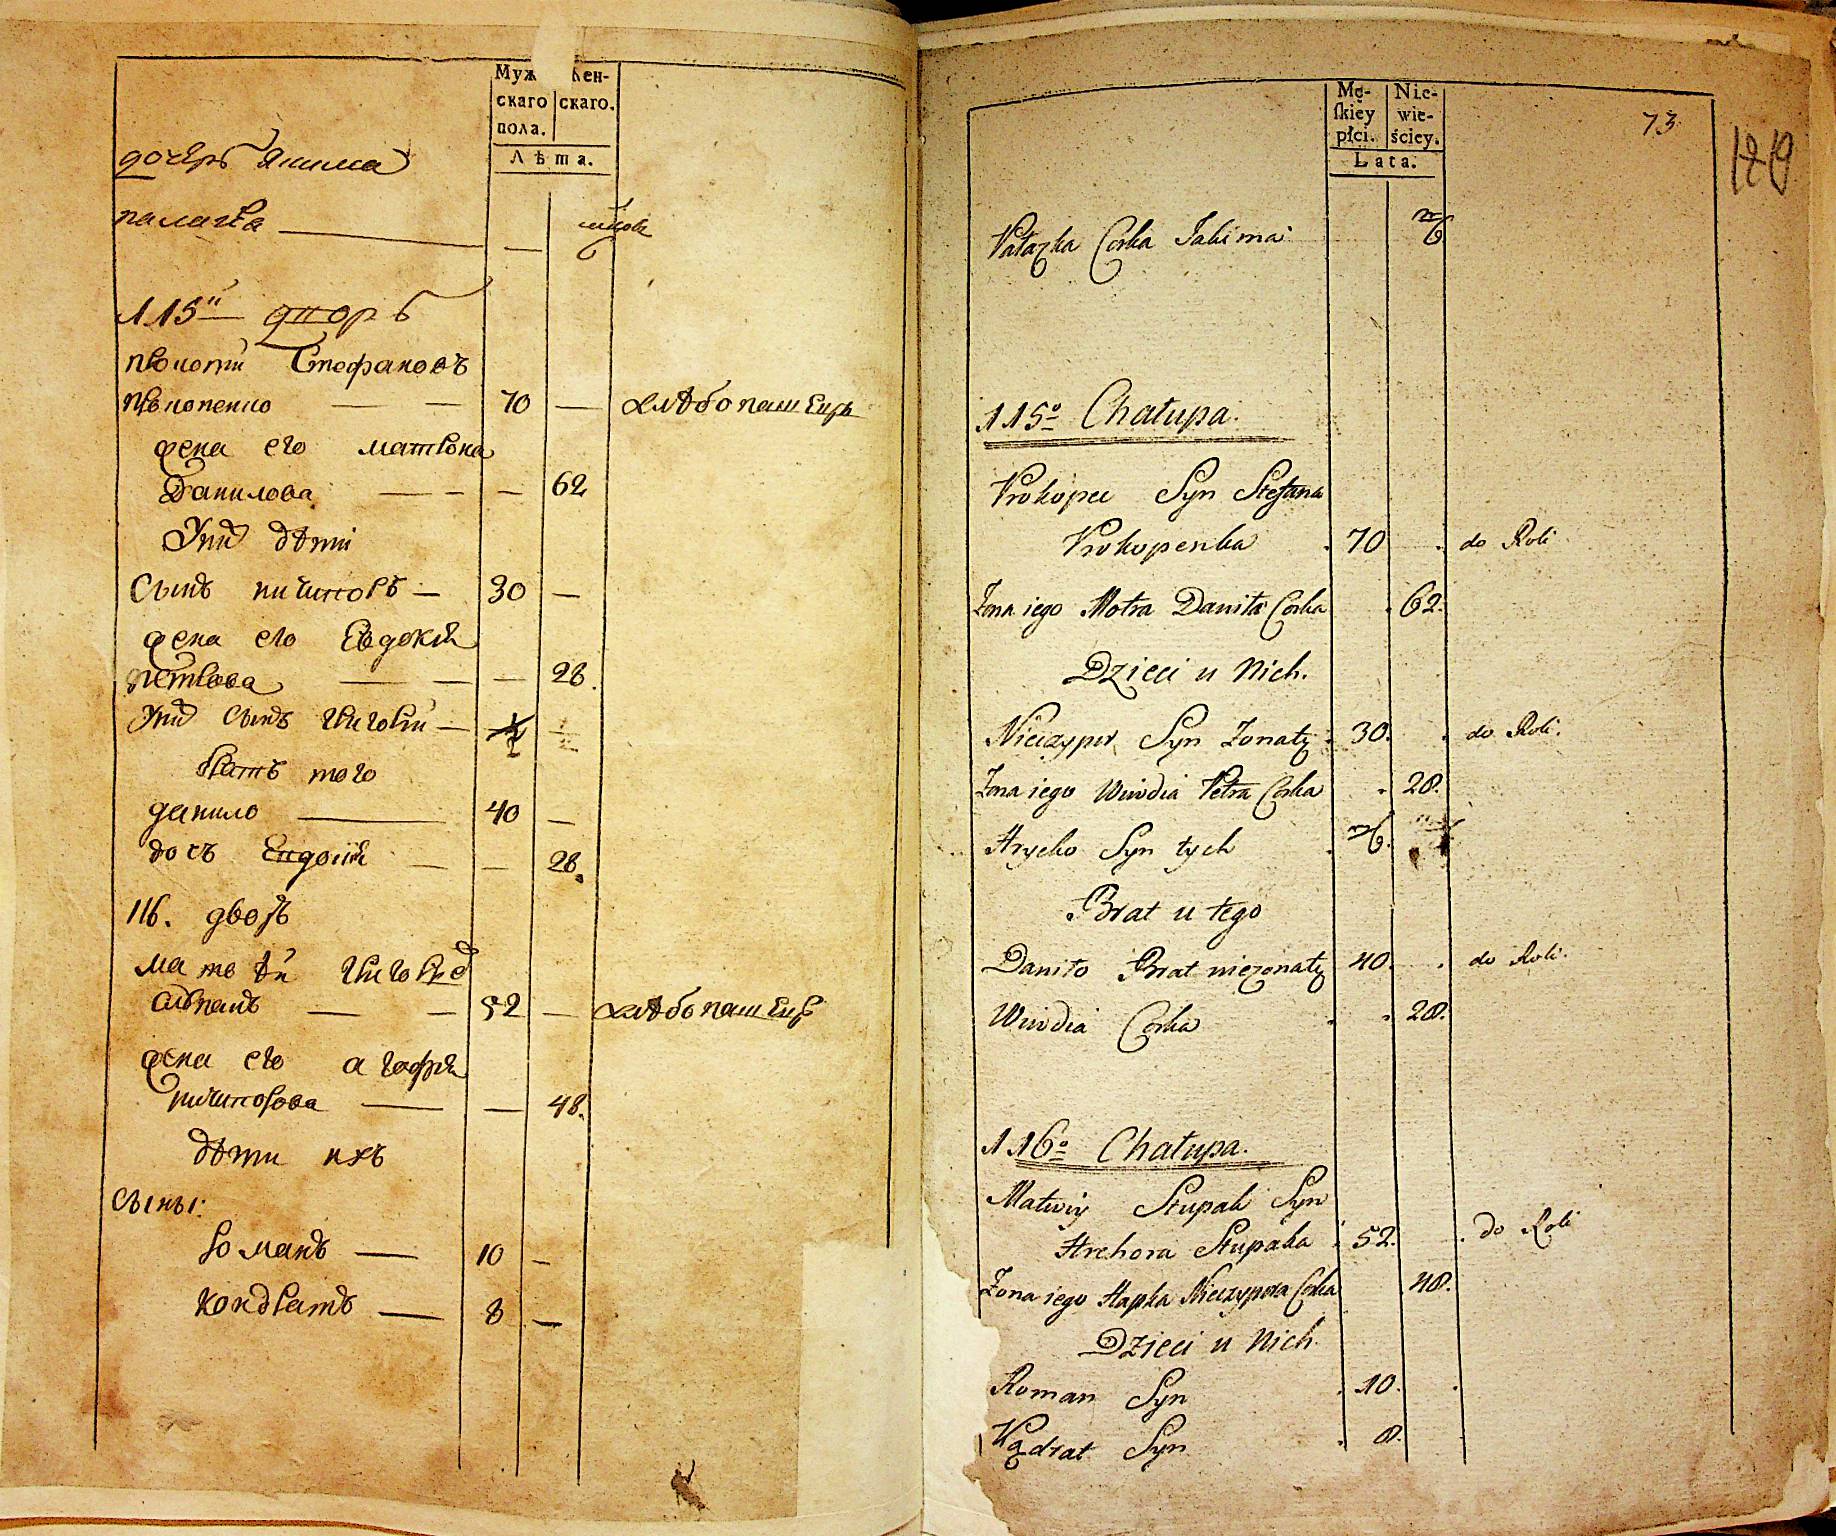 Муж Жен-
скаго скаго.
пола.
Лѣта.
дочерь Якима
палачка
115й дворъ
Прокопій Стефановъ
Прокопенко — — 70 — хлѣбопашецъ
жена его матрона
Данилова — — 62
У них дѣти
Сынъ ничипоръ — 30 —
жена его Евдокія
петрова — — — 28.
У них сынъ григорій —
братъ того
данило — 40 —
дочь Евдокія — — 28.
116. дворъ
матвѣй григорьев
Ступакъ — — 52 — хлѣбопашецъ
жена его агафія
ничипорова — — 48.
дѣти ихъ
Сыны:
романъ — 10 —
кондратъ — 8 —
Mę- Nie-
skiey wie-
płci. ściey.
Lata.
73
Pałazka Corka Jakima
115o Chałupa.
Prokopei Syn Stefana
Prokopenka 70 do Roli
Żona iego Motra Daniła Corka 62.
Dzieci u Nich.
Niczypor Syn Żonaty 30. do Roli.
Żona iego Wiwdia Petra Corka 28.
Hrycko Syn tych
Brat u tego
Daniło Brat nieżonaty 40. do Roli.
Wiwdia Corka 28.
116o Chałupa.
Matwiy Stupak Syn
Hrehora Stupaka 52. do Roli
Żona iego Hapka Niczypora Corka 48.
Dzieci u Nich
Roman Syn 10.
Kądrat Syn 8.